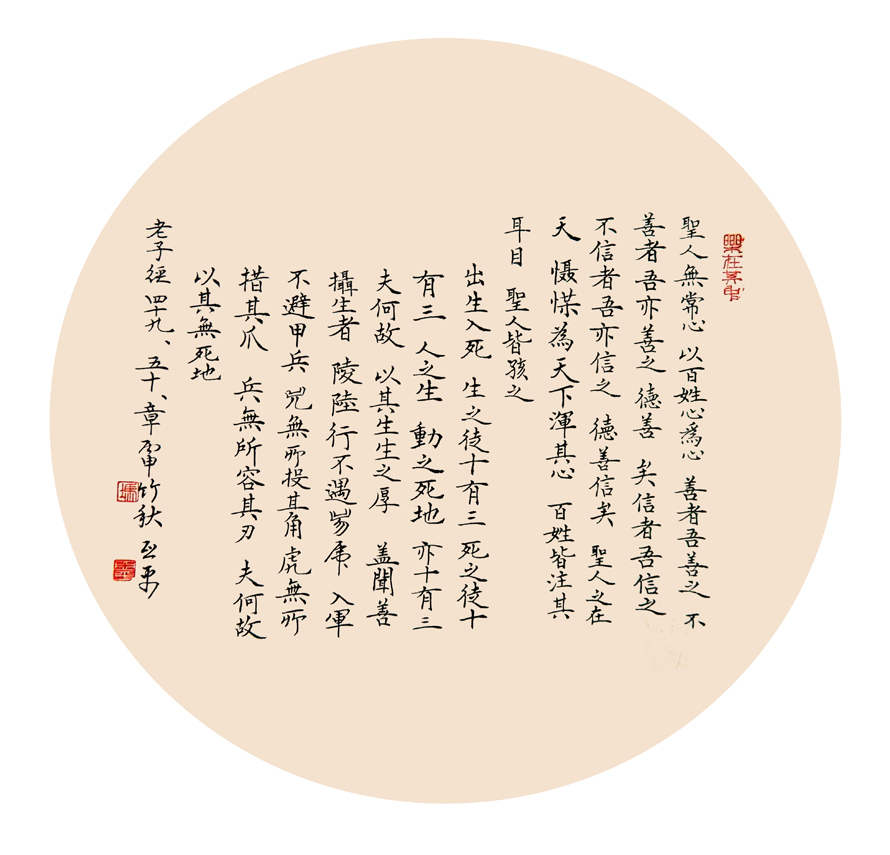 樂在其中
聖人無常心 以百姓心爲心 善者吾善之 不
善者吾亦善之 德善 矣信者吾信之
不信者吾亦信之 德善信矣 聖人之在
天 慑惵為天下渾其心 百姓皆注其
耳目 聖人皆孩之
出生入死 生之徒十有三 死之徒十
有三 人之生 動之死地 亦十有三
夫何故 以其生生之厚 盖聞善
攝生者 陵陸行不遇兕虎 入軍
不避甲兵 兕無所投其角 虎無所
措其爪 兵無所容其刃 夫何故
以其無死地
老子經四十九、五十、章丙申竹秋